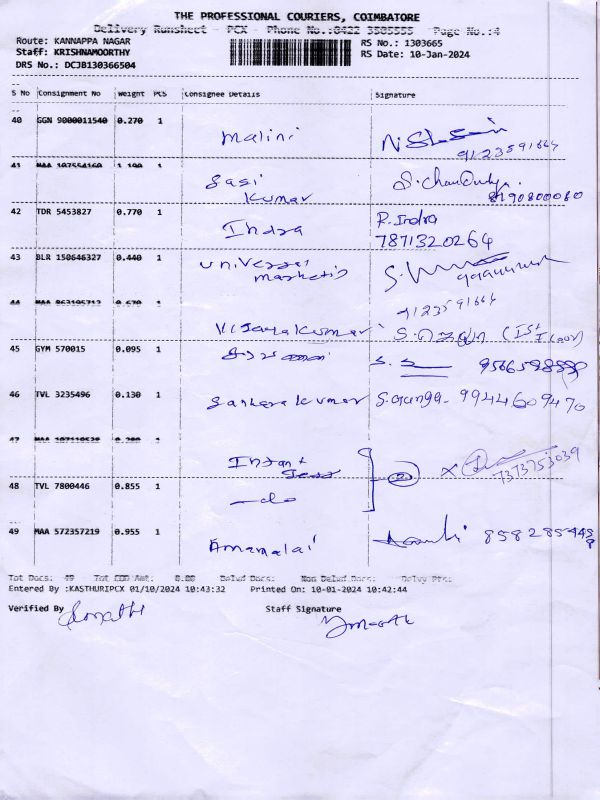 THE PROFESSIONAL COURIERS, COIMBATORE
Delivery Runsheet - PCX - Phone No.:0422 3505555 Page No.:4
Route: KANNAPPA NAGAR RS No.: 1303665
Staff: KRISHNAMOORTHY RS Date: 10-Jan-2024
DRS No.: DCJB130366504
S No Consignment No Weight PCS Consignee Details Signature
40 GGN 9000011540 0.270 1
Malini
9123591664
41 MAA 107554160 1.100 1
Sasi S.
Kumar 8190800060
42 TDR 5453827 0.770 1 P. Indra
Indra 7871320264
43 BLR 150646327 0.440 1
Universal
marketing
44 MAA 863105712 0.670 1 9123591664
Vijayakumar
45 GYM 570015 0.095 1
46 TVL 3235496 0.130 1
Sankara Kumar S. Ganga- 9944609470
47 MAA 0.200 1
Infant 7373753039
Jess
48 TVL 7800446 0.855 1
—do
49 MAA 572357219 0.955 1
Annamalai
Tot Docs: 49 Tot COD Amt: 0.00 Delvd Docs: Non Delvd Docs: Delvy Pts:
Entered By :KASTHURIPCX 01/10/2024 10:43:32 Printed On: 10-01-2024 10:42:44
Verified By Staff Signature